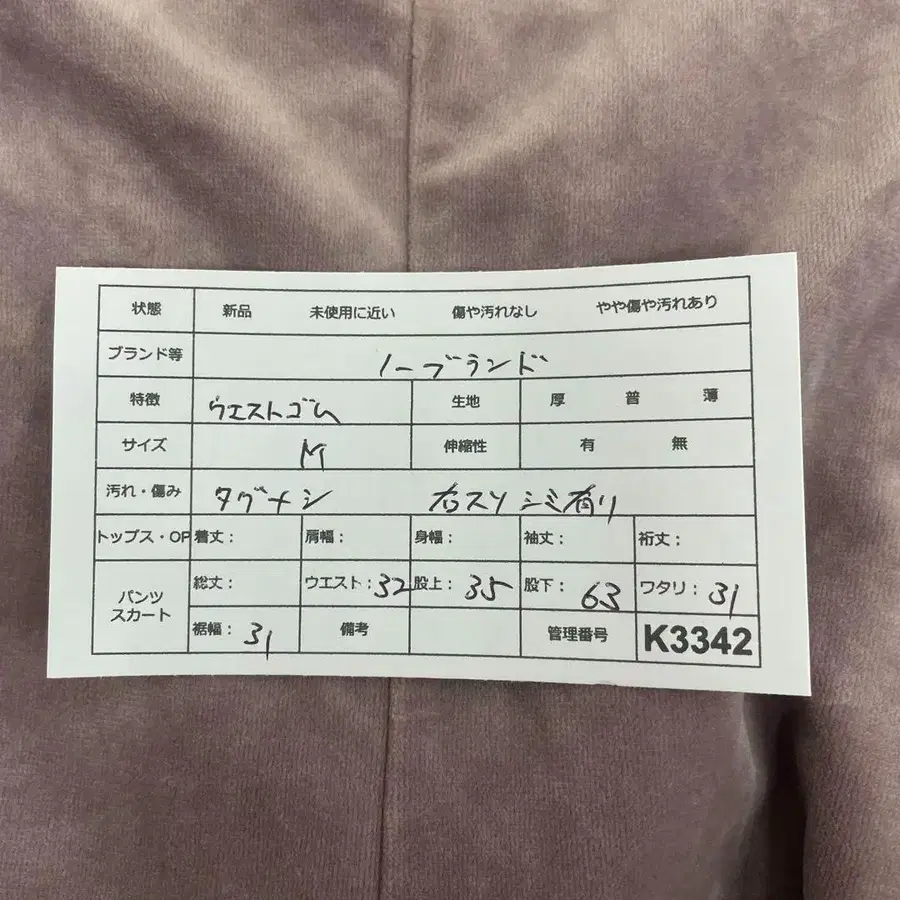 状態 新品 未使用に近い 傷や汚れなし やや傷や汚れあり
ブランド等 ノーブランド
特徴 ウエストゴム 生地 厚 普 薄
サイズ M 伸縮性 有 無
汚れ・傷み タグナシ 右スソ シミ有り
トップス・OP 着丈: 肩幅: 身幅: 袖丈: 裄丈:
パンツ スカート 総丈: ウエスト:32 股上:35 股下:63 ワタリ:31
裾幅:31 備考 管理番号 K3342